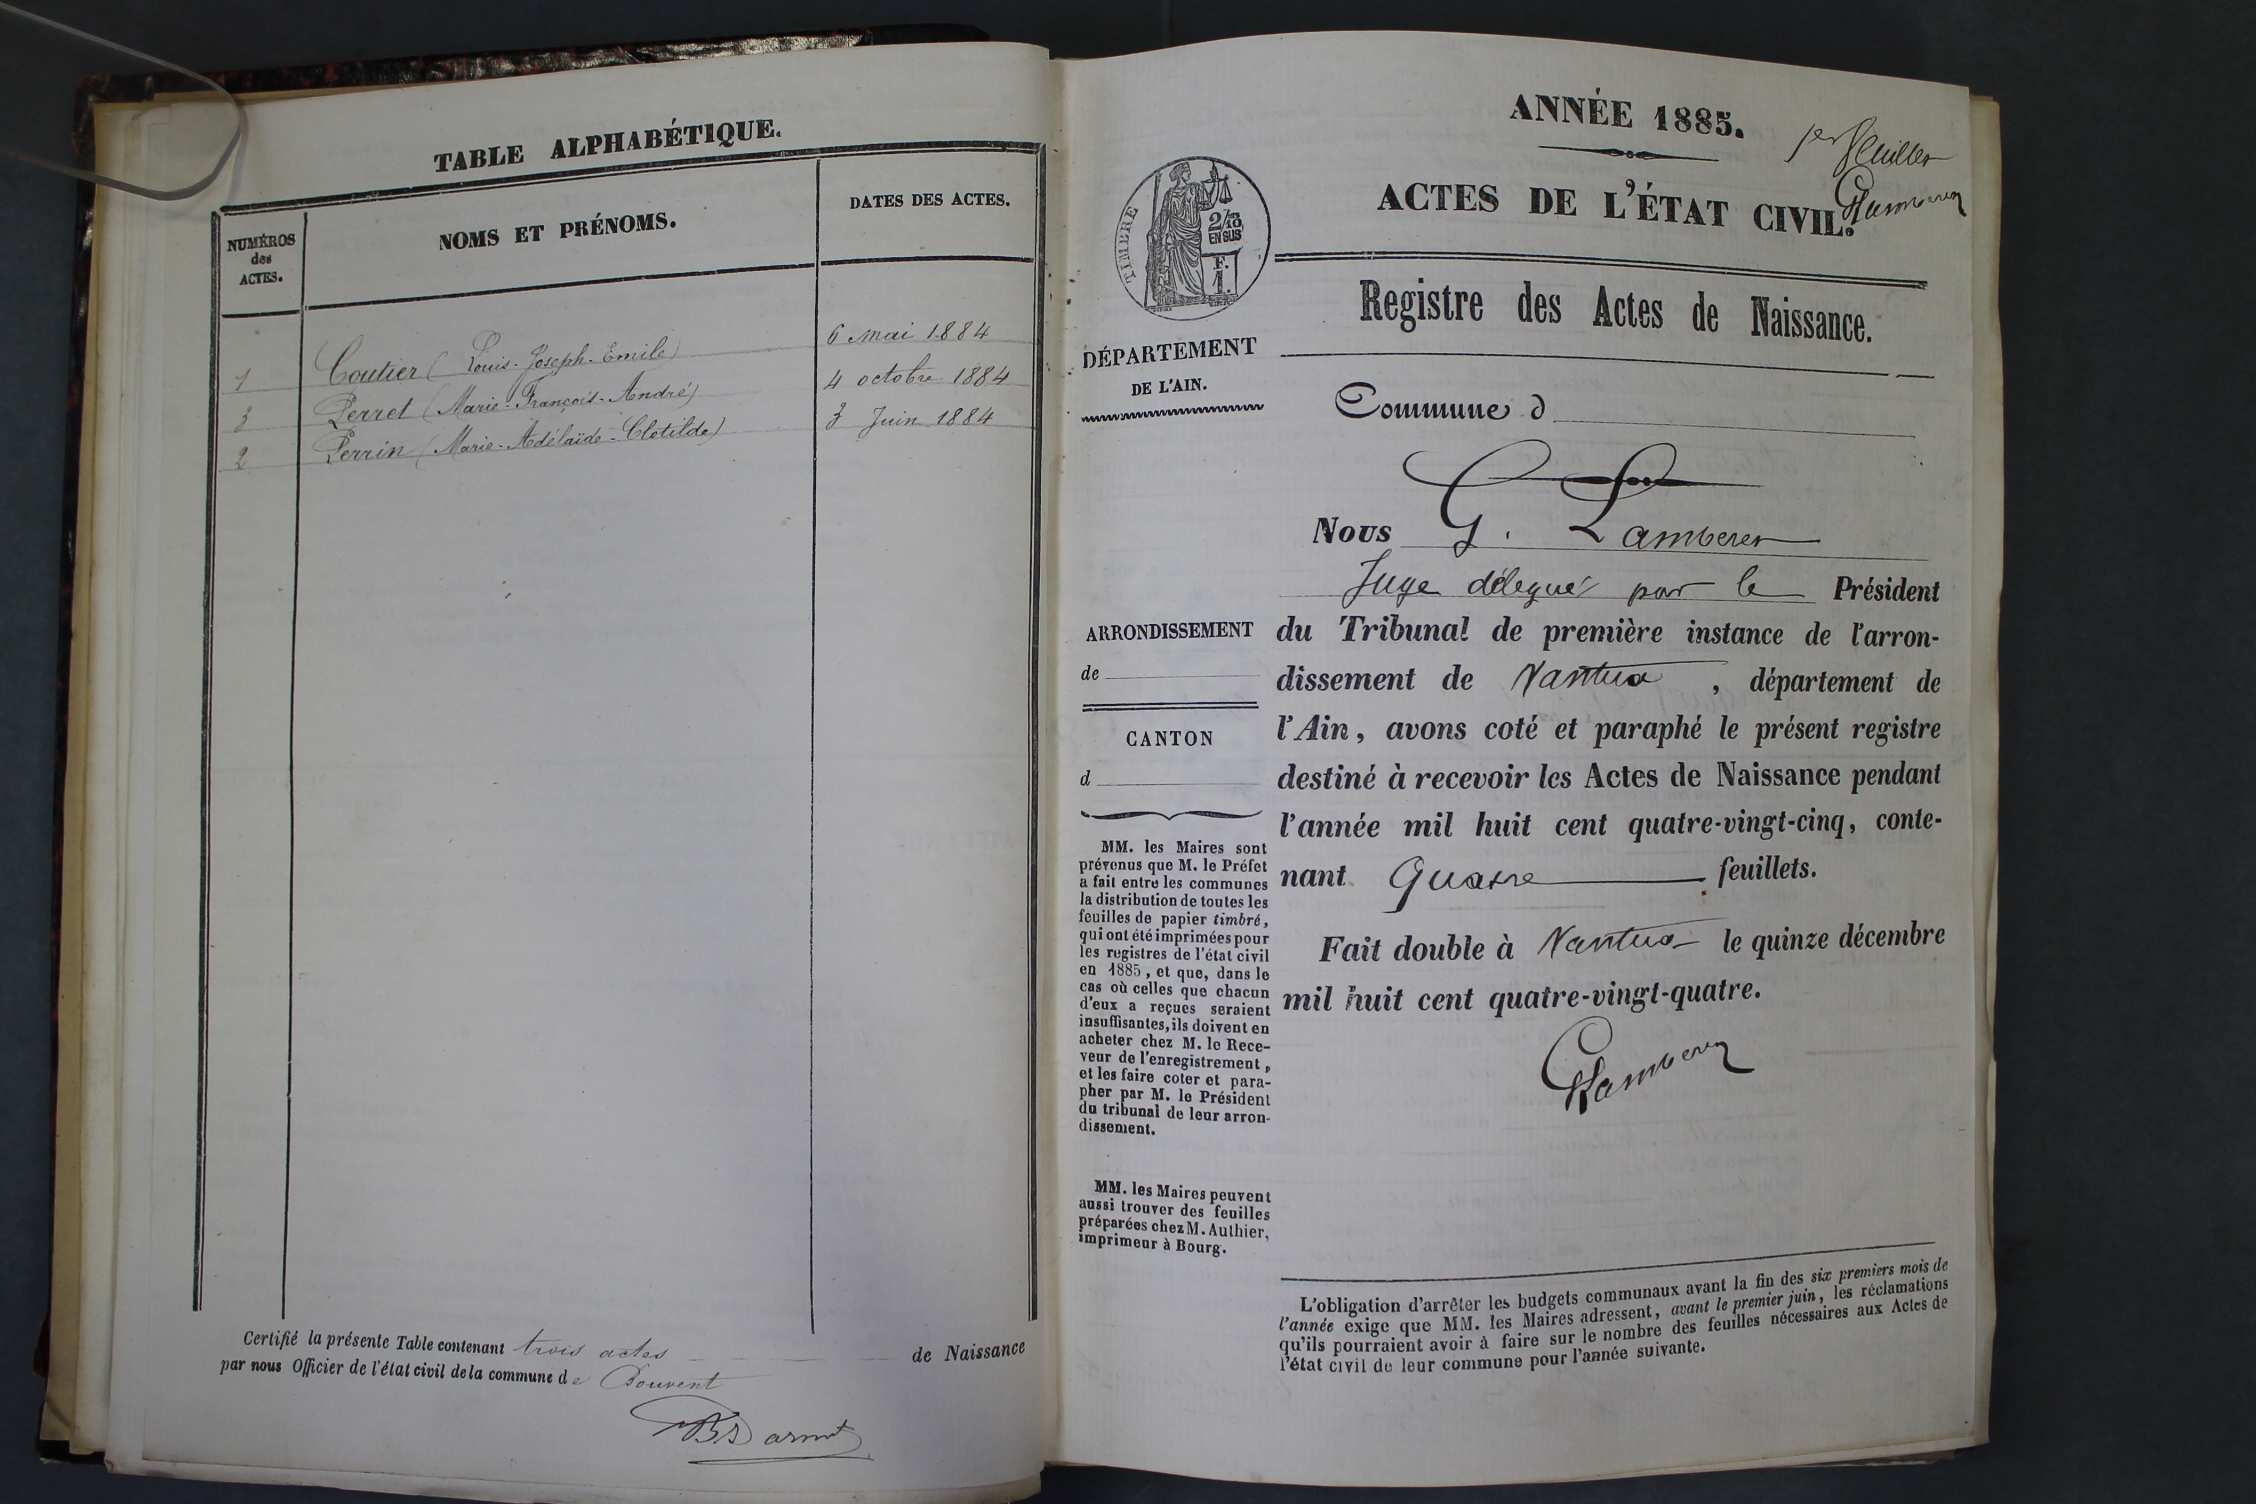 TABLE ALPHABÉTIQUE.
NUMÉROS
des
ACTES.
NOMS ET PRÉNOMS.
DATES DES ACTES.
1 Coutier (Louis-Joseph-Emile) 6 mai 1884
3 Perret (Marie-François-André) 4 octobre 1884
2 Perrin (Marie-Adélaïde-Clotilde) 3 Juin 1884
Certifié la présente Table contenant trois actes de Naissance
par nous Officier de l'état civil de la commune de Bouvent
ANNÉE 1885.
1er feuillet
ACTES DE L'ÉTAT CIVIL.
TIMBRE
2/10
EN SUS
F.
1.
Registre des Actes de Naissance.
DÉPARTEMENT
DE L'AIN.
Commune d
Nous G.
Juge délégué par le Président
ARRONDISSEMENT
de
CANTON
d
du Tribunal de première instance de l'arron-
dissement de Nantua, département de
l'Ain, avons coté et paraphé le présent registre
destiné à recevoir les Actes de Naissance pendant
l'année mil huit cent quatre-vingt-cinq, conte-
nant Quatre feuillets.
Fait double à Nantua le quinze décembre
mil huit cent quatre-vingt-quatre.
MM. les Maires sont
prévenus que M. le Préfet
a fait entre les communes
la distribution de toutes les
feuilles de papier timbré,
qui ont été imprimées pour
les registres de l'état civil
en 1885, et que, dans le
cas où celles que chacun
d'eux a reçues seraient
insuffisantes, ils doivent en
acheter chez M. le Rece-
veur de l'enregistrement,
et les faire coter et para-
pher par M. le Président
du tribunal de leur arron-
dissement.
MM. les Maires peuvent
aussi trouver des feuilles
préparées chez M. Authier,
imprimeur à Bourg.
L'obligation d'arrêter les budgets communaux avant la fin des six premiers mois de
l'année exige que MM. les Maires adressent, avant le premier juin, les réclamations
qu'ils pourraient avoir à faire sur le nombre des feuilles nécessaires aux Actes de
l'état civil de leur commune pour l'année suivante.